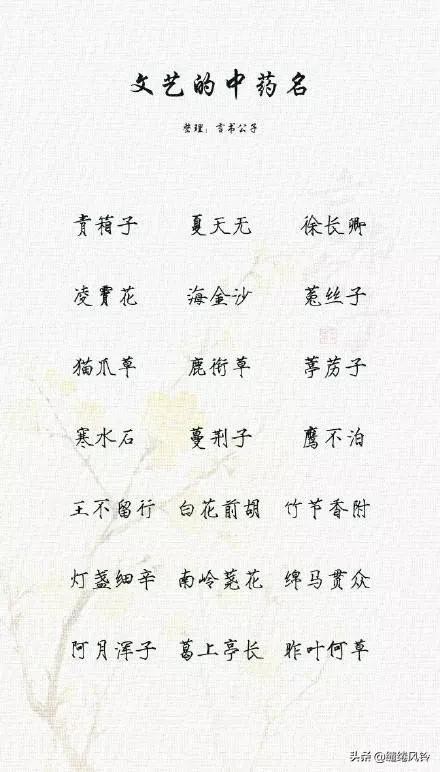 文艺的中药名
整理：言书公子
青箱子 夏天无 徐长卿
凌霄花 海金沙 菟丝子
猫爪草 鹿衔草 葶苈子
寒水石 蔓荆子 鹰不泊
王不留行 白花前胡 竹节香附
灯盏细辛 南岭荛花 绵马贯众
阿月浑子 葛上亭长 昨叶何草
头条 @缱绻风铃